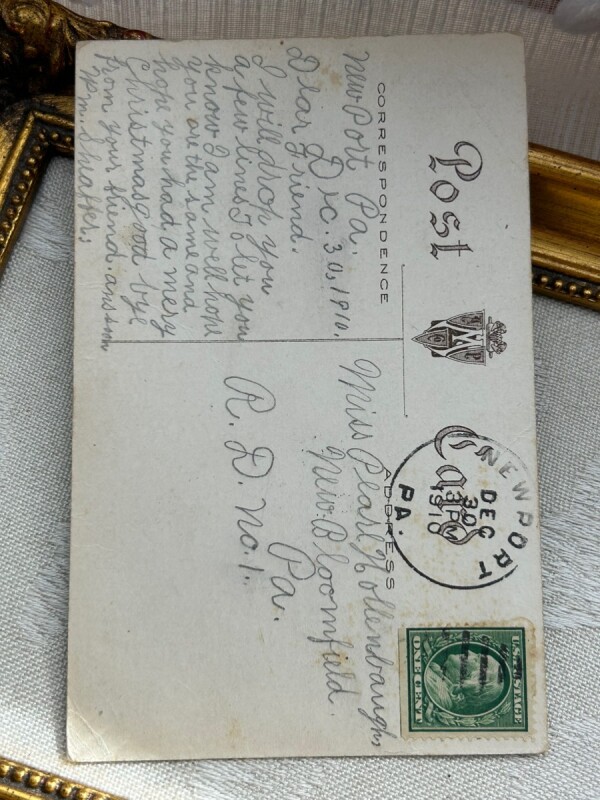 Post Card
CORRESPONDENCE
ADDRESS
New Port Pa.
Dec. 30, 1910.
Dear Friend.
I will drop you
a few lines to let you
know I am well hope
you are the same and
hope you had a mery
Christmas good by
from your friend. ans soon
Wm. Sheaffer,
Miss Pearl Hollenbaugh,
New Bloomfield.
Pa.
R. D. No. 1.
NEWPORT
DEC
30
3 PM
1910
PA.
U.S. POSTAGE
ONE CENT